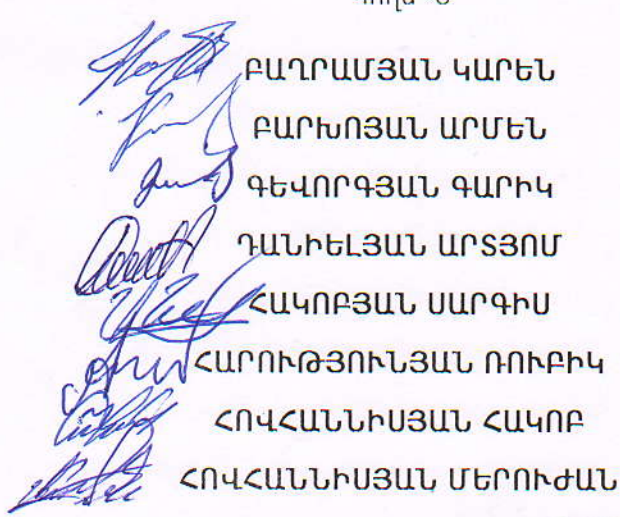 ԲԱՂՐԱՄՅԱՆ ԿԱՐԵՆ
ԲԱՐԽՈՅԱՆ ԱՐՄԵՆ
ԳԵՎՈՐԳՅԱՆ ԳԱՐԻԿ
ԴԱՆԻԵԼՅԱՆ ԱՐՏՅՈՄ
ՀԱԿՈԲՅԱՆ ՍԱՐԳԻՍ
ՀԱՐՈՒԹՅՈՒՆՅԱՆ ՌՈՒԲԻԿ
ՀՈՎՀԱՆՆԻՍՅԱՆ ՀԱԿՈԲ
ՀՈՎՀԱՆՆԻՍՅԱՆ ՄԵՐՈՒԺԱՆ